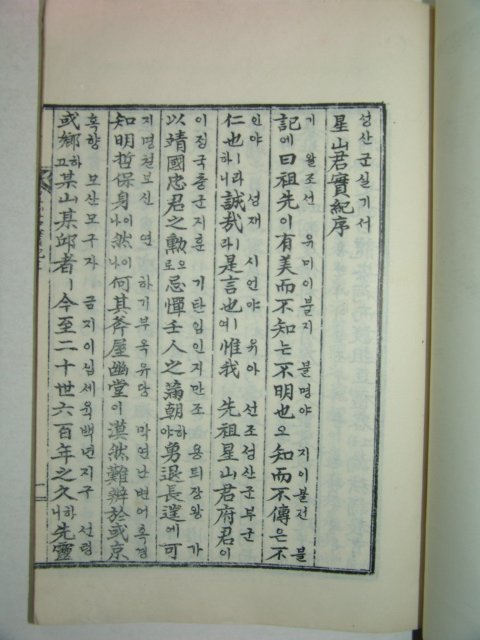 성산군실기서
星山君實紀序
기 왈조선 유미이불지 불명야 지이불전 불
記에曰祖先이有美而不知는不明也오知而不傳은不
인야 성재 시언야 유아 선조성산군부군
仁也ㅣ라하니誠哉라是言也여惟我 先祖星山君府君이
이정국충군지훈 기탄임인지만조 용퇴장왕 가
以靖國忠君之勲으로忌憚壬人之滿朝하야勇退長 에可
지명철보신 연 하기부옥유당 막연난변어혹경
知明哲保身이나然이나何其斧屋幽堂이漠然難辨於或京
혹향 모산모구자 금지이십세육백년지구 선령
或鄕하고某山某邱者ㅣ今至二十世六百年之久하니先靈